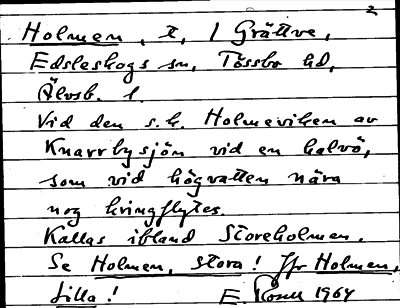 2
Holmen, t, / Grättve,
Edsleskogs sn, Tössbo hd,
Älvsb. l.
Vid den s.k. Holmeviken av
Knarrbysjön vid en halvö,
som vid högvatten nära
nog kringflytes.
Kallas ibland Storeholmen.
Se Holmen, stora! Jfr Holmen,
Lilla! E. 1964